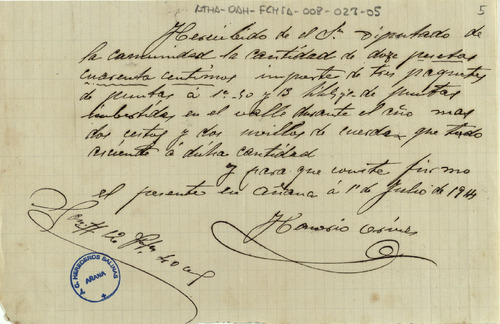 ATHA-DAH-FCMSA-008-023-05
5
He recibido de el Sr. Diputado de
la comunidad la cantidad de doze pesetas
cuarenta centimos importe de tres paquetes
de puntas á 1=50 y 13 de puntas
imbertidas en el valle durante el año mas
dos cestos y dos novillos de cuerda que todo
asciende á dicha cantidad
y para que conste firmo
el presente en Añana á 1º de Julio de 1914
Honorio
C. G. HEREDEROS SALINAS
AÑANA